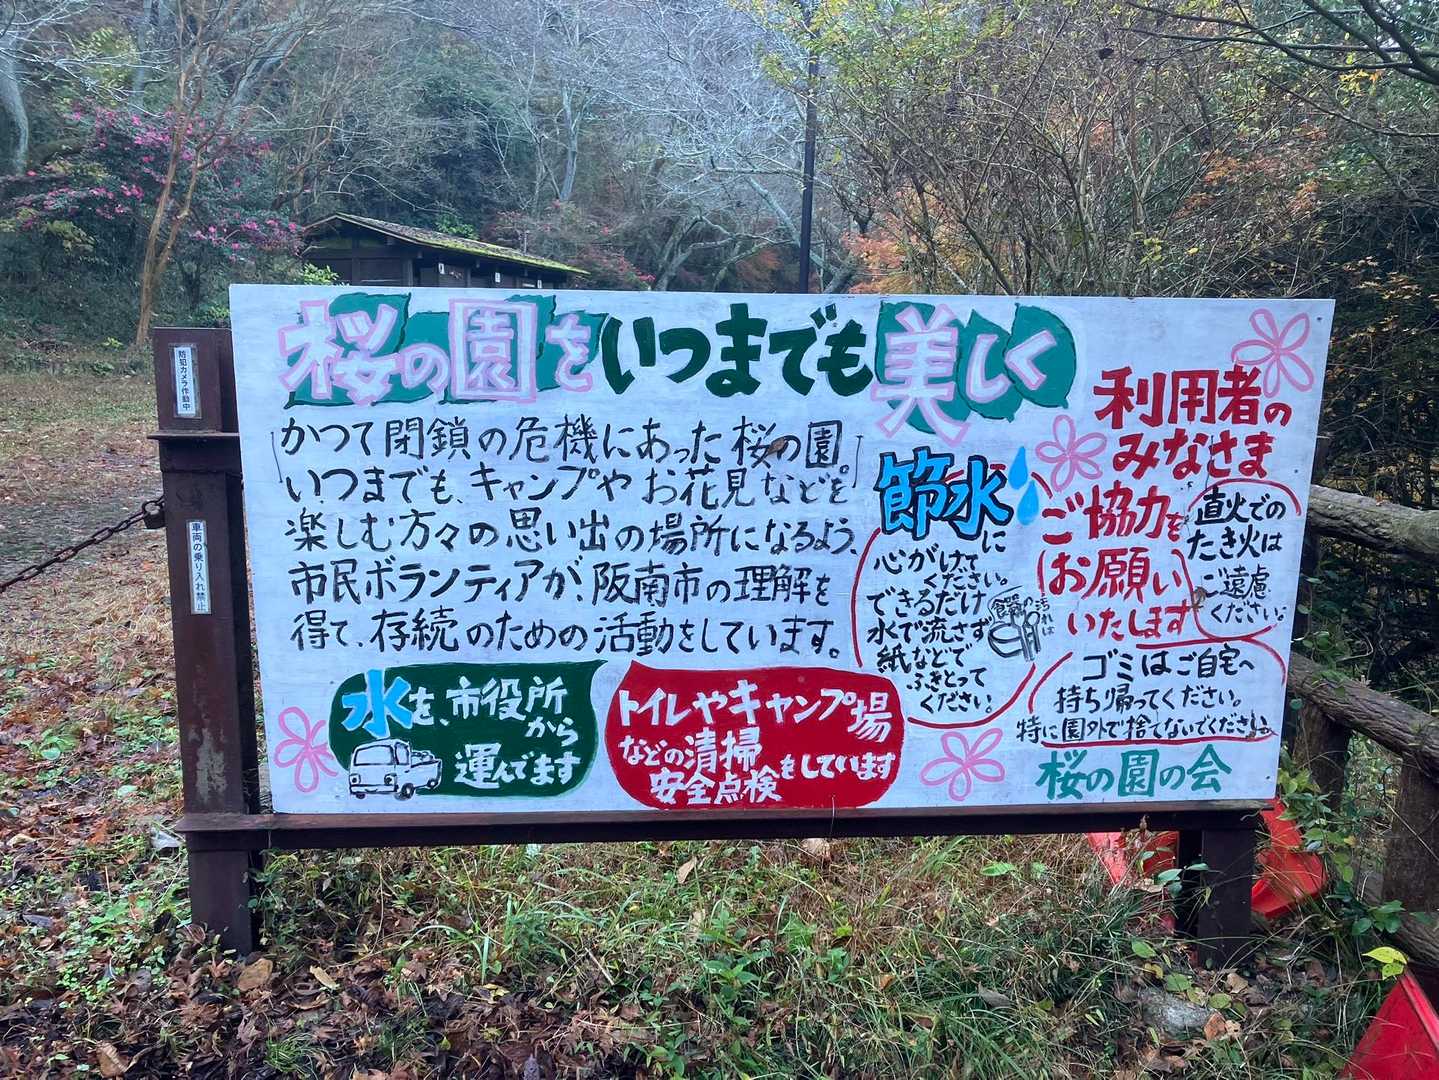 桜の園をいつまでも美しく
かつて閉鎖の危機にあった桜の園。
いつまでも、キャンプやお花見などを
楽しむ方々の思い出の場所になるよう、
市民ボランティアが、阪南市の理解を
得て、存続のための活動をしています。
水を、市役所
から
運んでます
トイレやキャンプ場
などの清掃
安全点検をしています
節水に
心がけて
ください。
できるだけ
水で流さず
紙などで
ふきとって
ください。
食器の
汚れは
利用者の
みなさま
ご協力を
お願い
いたします
直火での
たき火は
ご遠慮
ください。
ゴミはご自宅へ
持ち帰ってください。
特に園外で捨てないでください。
桜の園の会
防犯カメラ作動中
車両の乗り入れ禁止